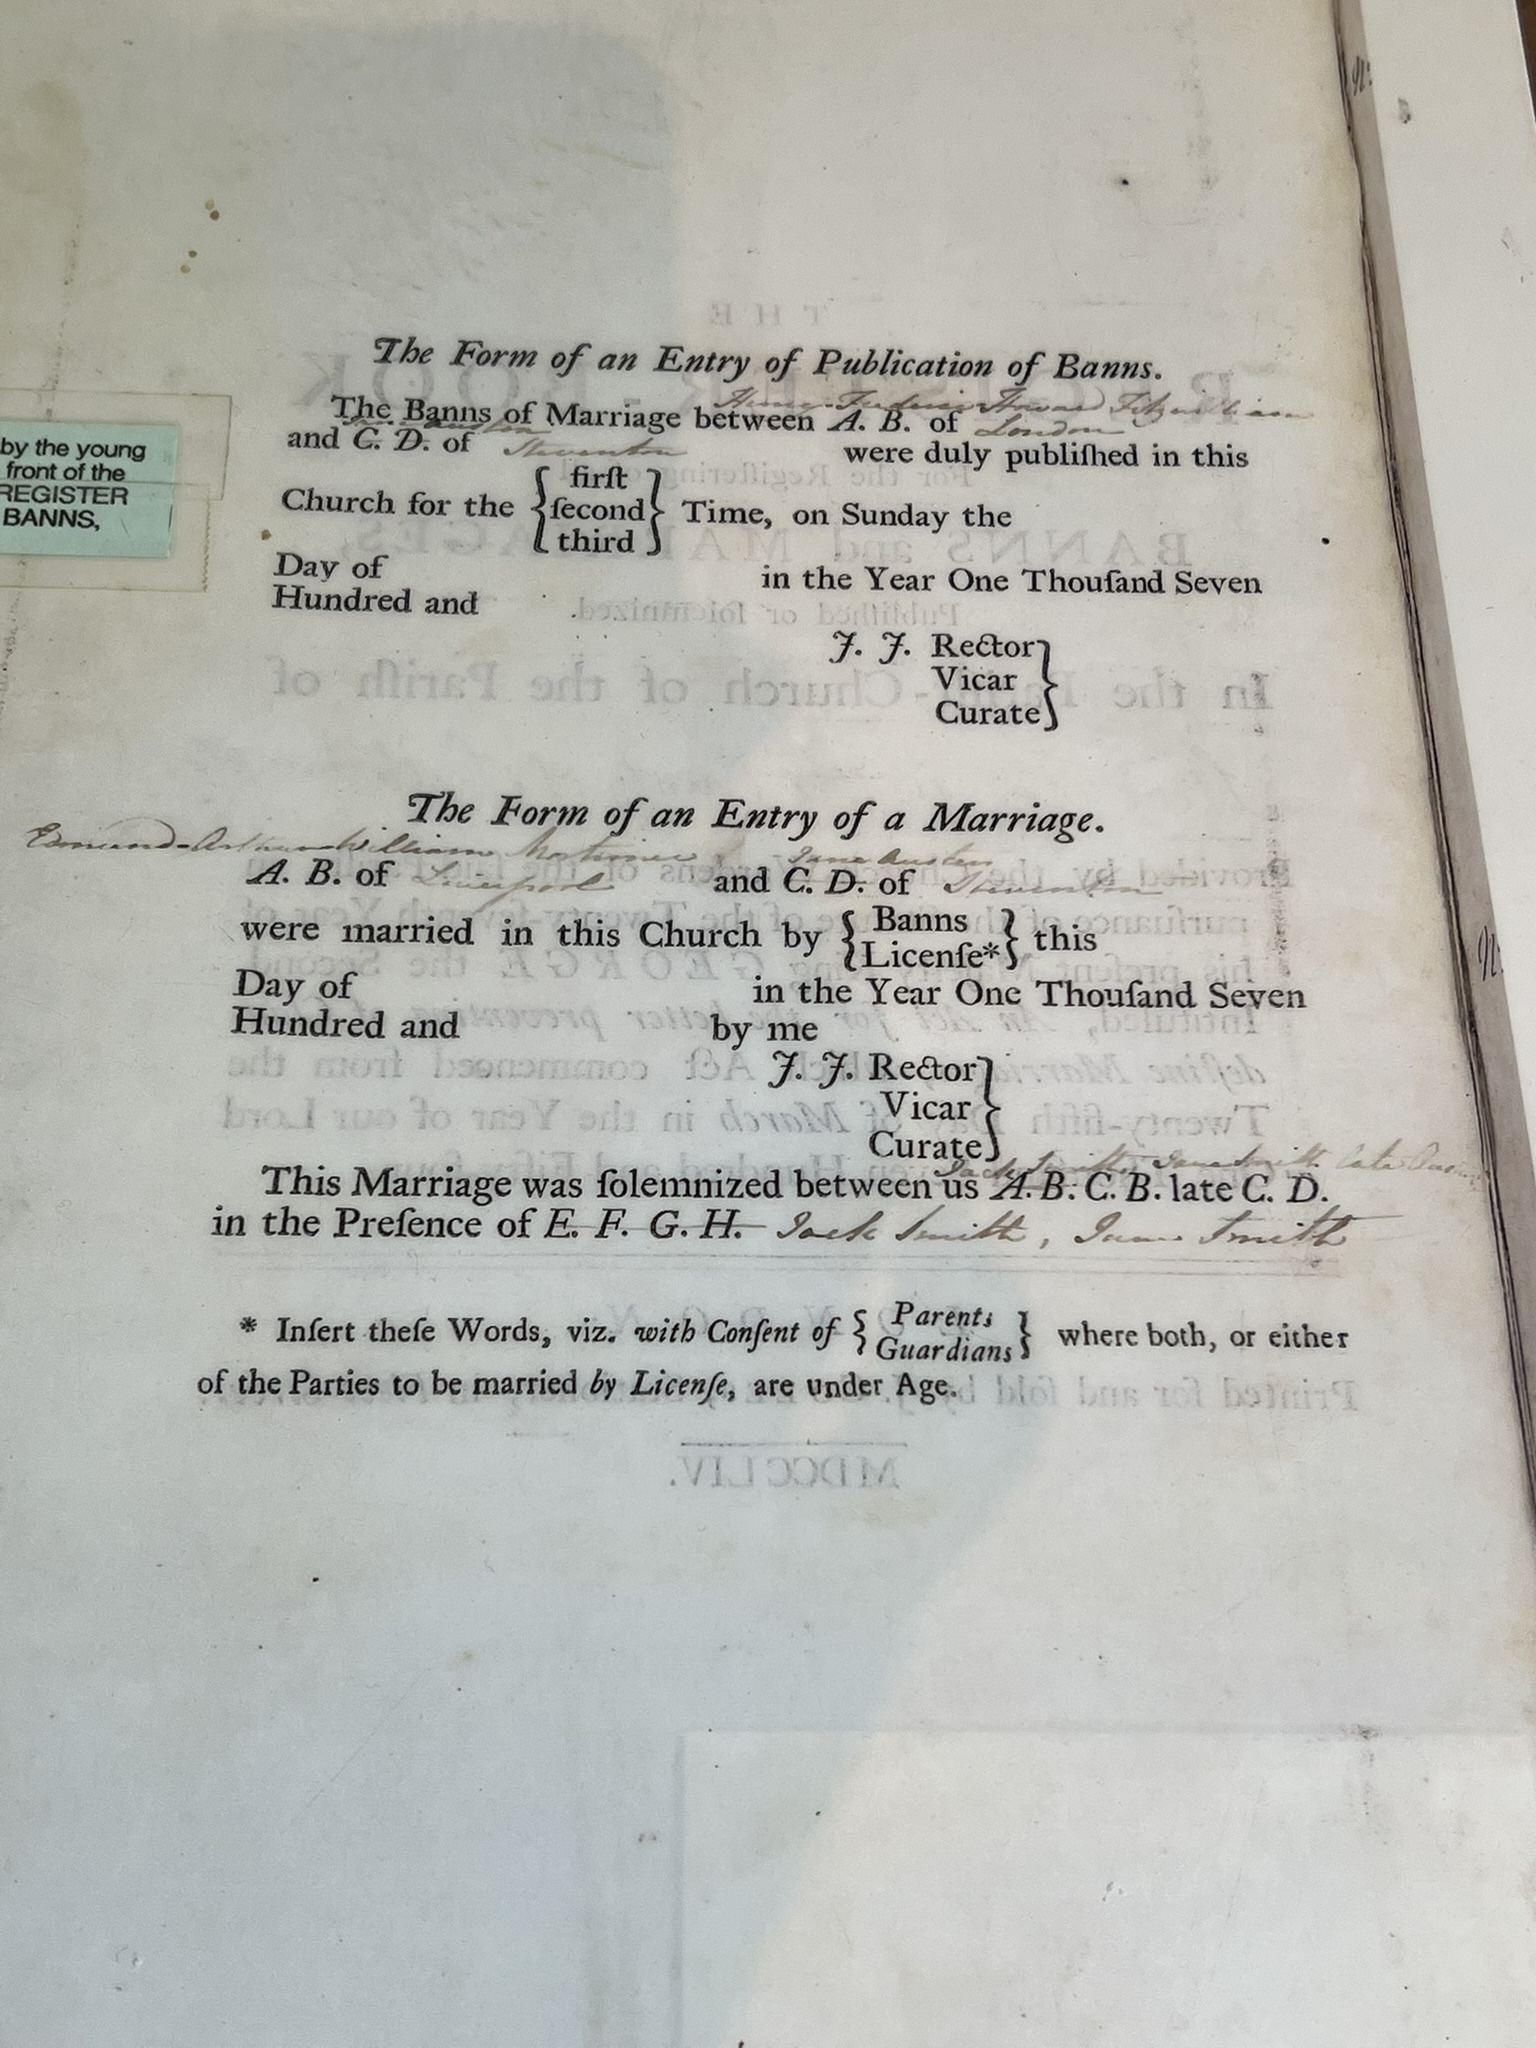 The Form of an Entry of Publication of Banns.
Henry Frederic Howard Fitzwilliam
The Banns of Marriage between A. B. of London
Jane Austen
and C. D. of Steventon were duly publiſhed in this
Church for the { firſt
ſecond
third } Time, on Sunday the
Day of in the Year One Thouſand Seven
Hundred and .
J. J. Rector
Vicar
Curate
The Form of an Entry of a Marriage.
Edmund Arthur William Mortimer Jane Austen
A. B. of Liverpool and C. D. of Steventon
were married in this Church by { Banns
Licenſe* } this
Day of in the Year One Thouſand Seven
Hundred and by me
J. J. Rector
Vicar
Curate
Jack Smith, Jane Smith late Austen
This Marriage was ſolemnized between us A. B. C. B. late C. D.
in the Preſence of E. F. G. H. Jack Smith, Jane Smith
* Inſert theſe Words, viz. with Conſent of { Parents
Guardians } where both, or either
of the Parties to be married by Licenſe, are under Age.
by the young
front of the
REGISTER
BANNS,
MDCCLIV.